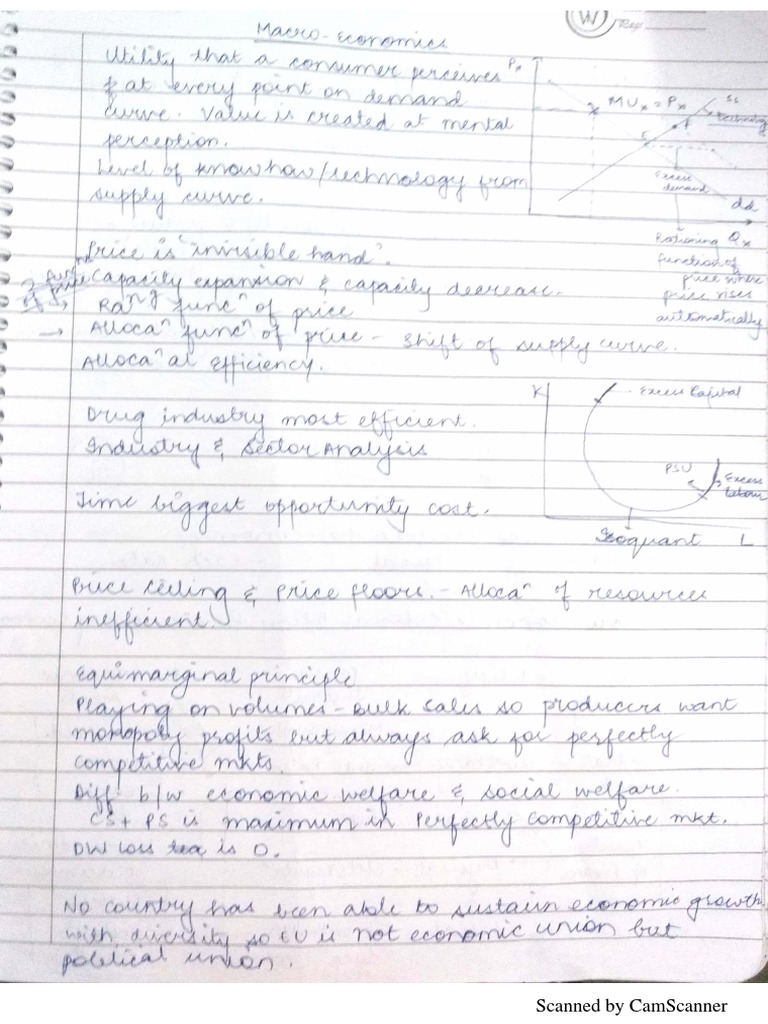 Macro-Economics
Utility that a consumer perceives
& at every point on demand
curve. Value is created at mental
perception.
Level of knowhow/technology from
supply curve.
Px
MUx = Px
SS
technology
E
Excess
demand
dd
Qx
Rationing
function of
price where
price rises
automatically
Price is 'invisible hand'.
Capacity expansion & capacity decrease.
2 func^n
of price
Ra^n g func^n of price
→ Alloca^n func^n of price - shift of supply curve.
Alloca^n al efficiency.
K
Excess Capital
PSU
Excess
labour
Isoquant
L
Drug industry most efficient.
Industry & Sector Analysis
Time biggest opportunity cost.
Price ceiling & Price floors. - Alloca^n of resources
inefficient.
Equimarginal principle
Playing on volumes - Bulk sales so producers want
monopoly profits but always ask for perfectly
competitive mkts.
Diff. b/w economic welfare & social welfare.
CS + PS is maximum in Perfectly Competitive mkt.
DW Loss is 0.
No country has been able to sustain economic growth
with diversity so EU is not economic union but
political union.
W
Scanned by CamScanner